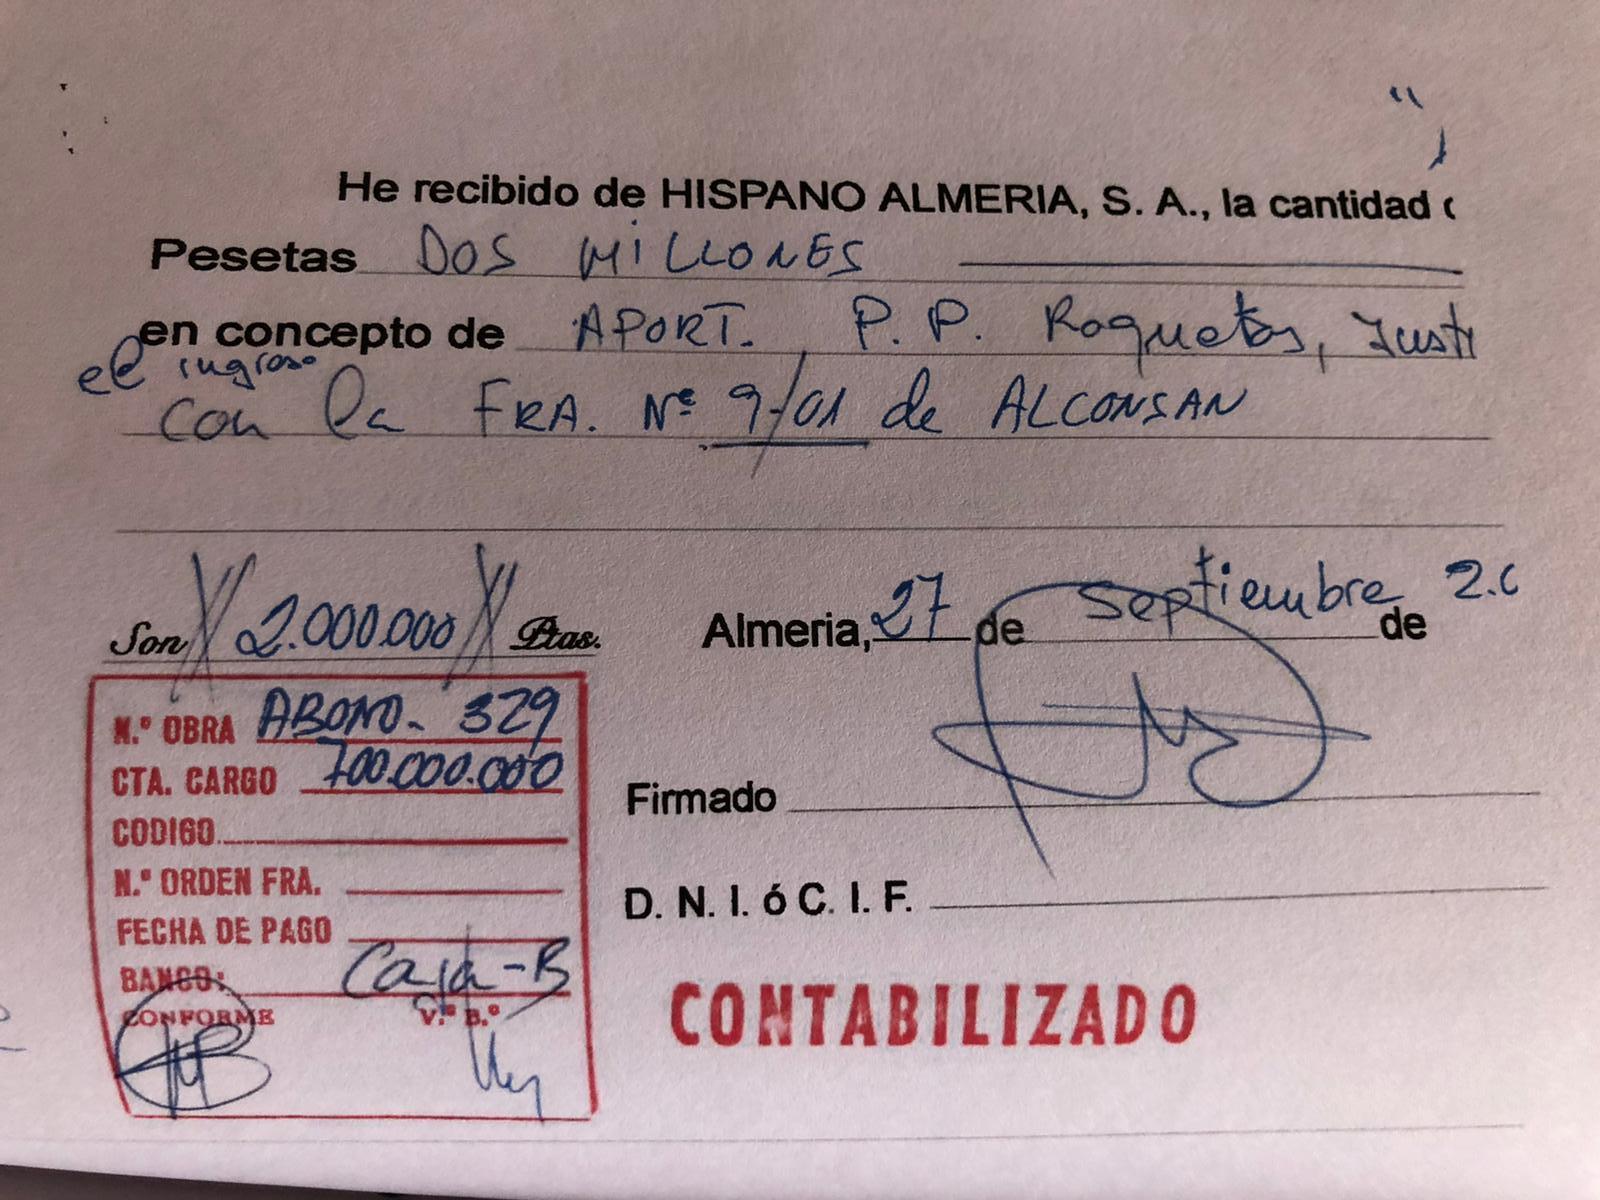 He recibido de HISPANO ALMERIA, S. A., la cantidad
Pesetas DOS MILLONES
en concepto de APORT. P.P. Roquetas, Justi
el ingreso
con la FRA. Nº 9/01 de ALCONSAN
Son 2.000.000 Ptas.
Almeria, 27 de septiembre de 2.0
N.º OBRA ABONO- 329
CTA. CARGO 700.000.000
CODIGO
N.º ORDEN FRA.
FECHA DE PAGO
BANCO: Caja-B
CONFORME V.º B.º
Firmado
D. N. I. ó C. I. F.
CONTABILIZADO